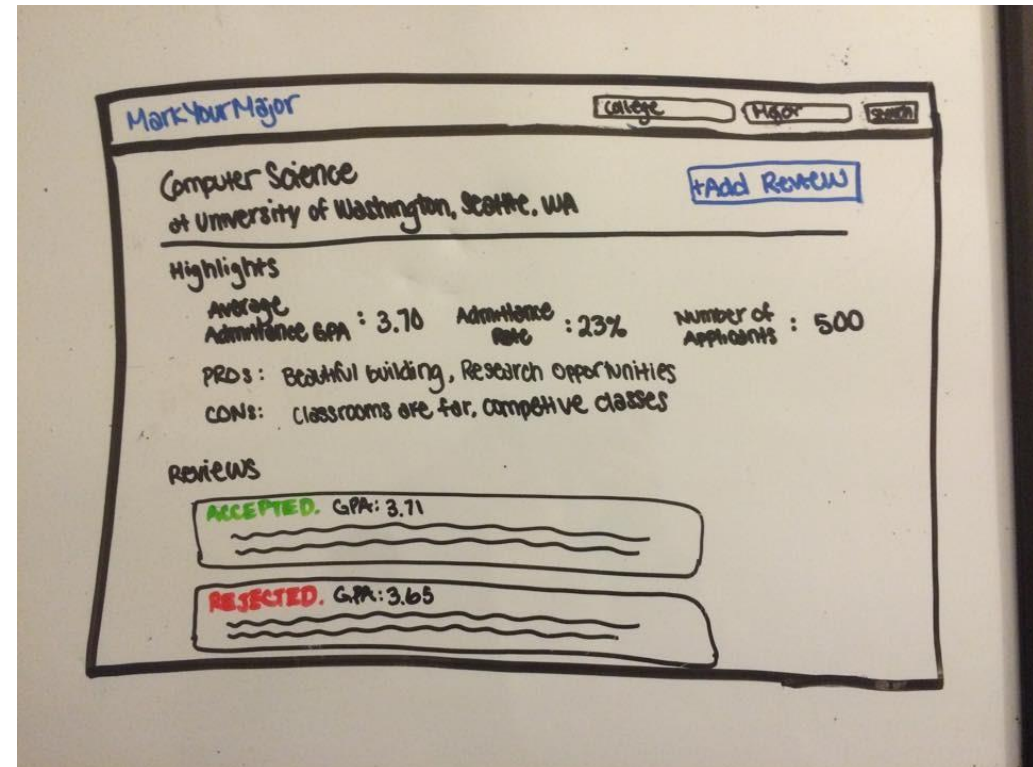 MarkYourMajor College Major Search
Computer Science
at University of Washington, Seattle, WA
+Add Review
Highlights
Average Admittance GPA : 3.70
Admittance Rate : 23%
Number of Applicants : 500
PROS: Beautiful building, Research Opportunities
CONS: Classrooms are far, competive classes
Reviews
ACCEPTED. GPA: 3.71
REJECTED. GPA: 3.65